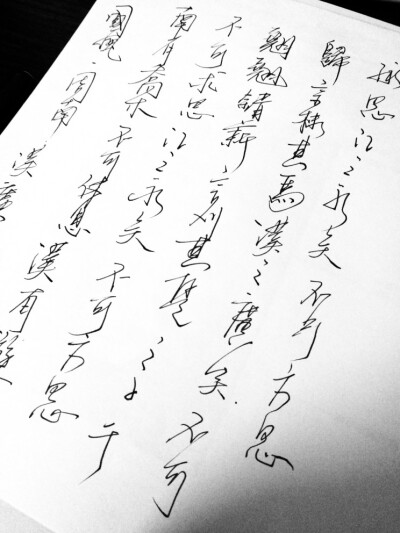 國風 周南 漢廣
南有喬木 不可休息 漢有游
不可求思 江之永矣 不可方思
翹翹錯薪 言刈其楚 之子于
歸 言秣其馬 漢之廣矣 不可
泳思 江之永矣 不可方思